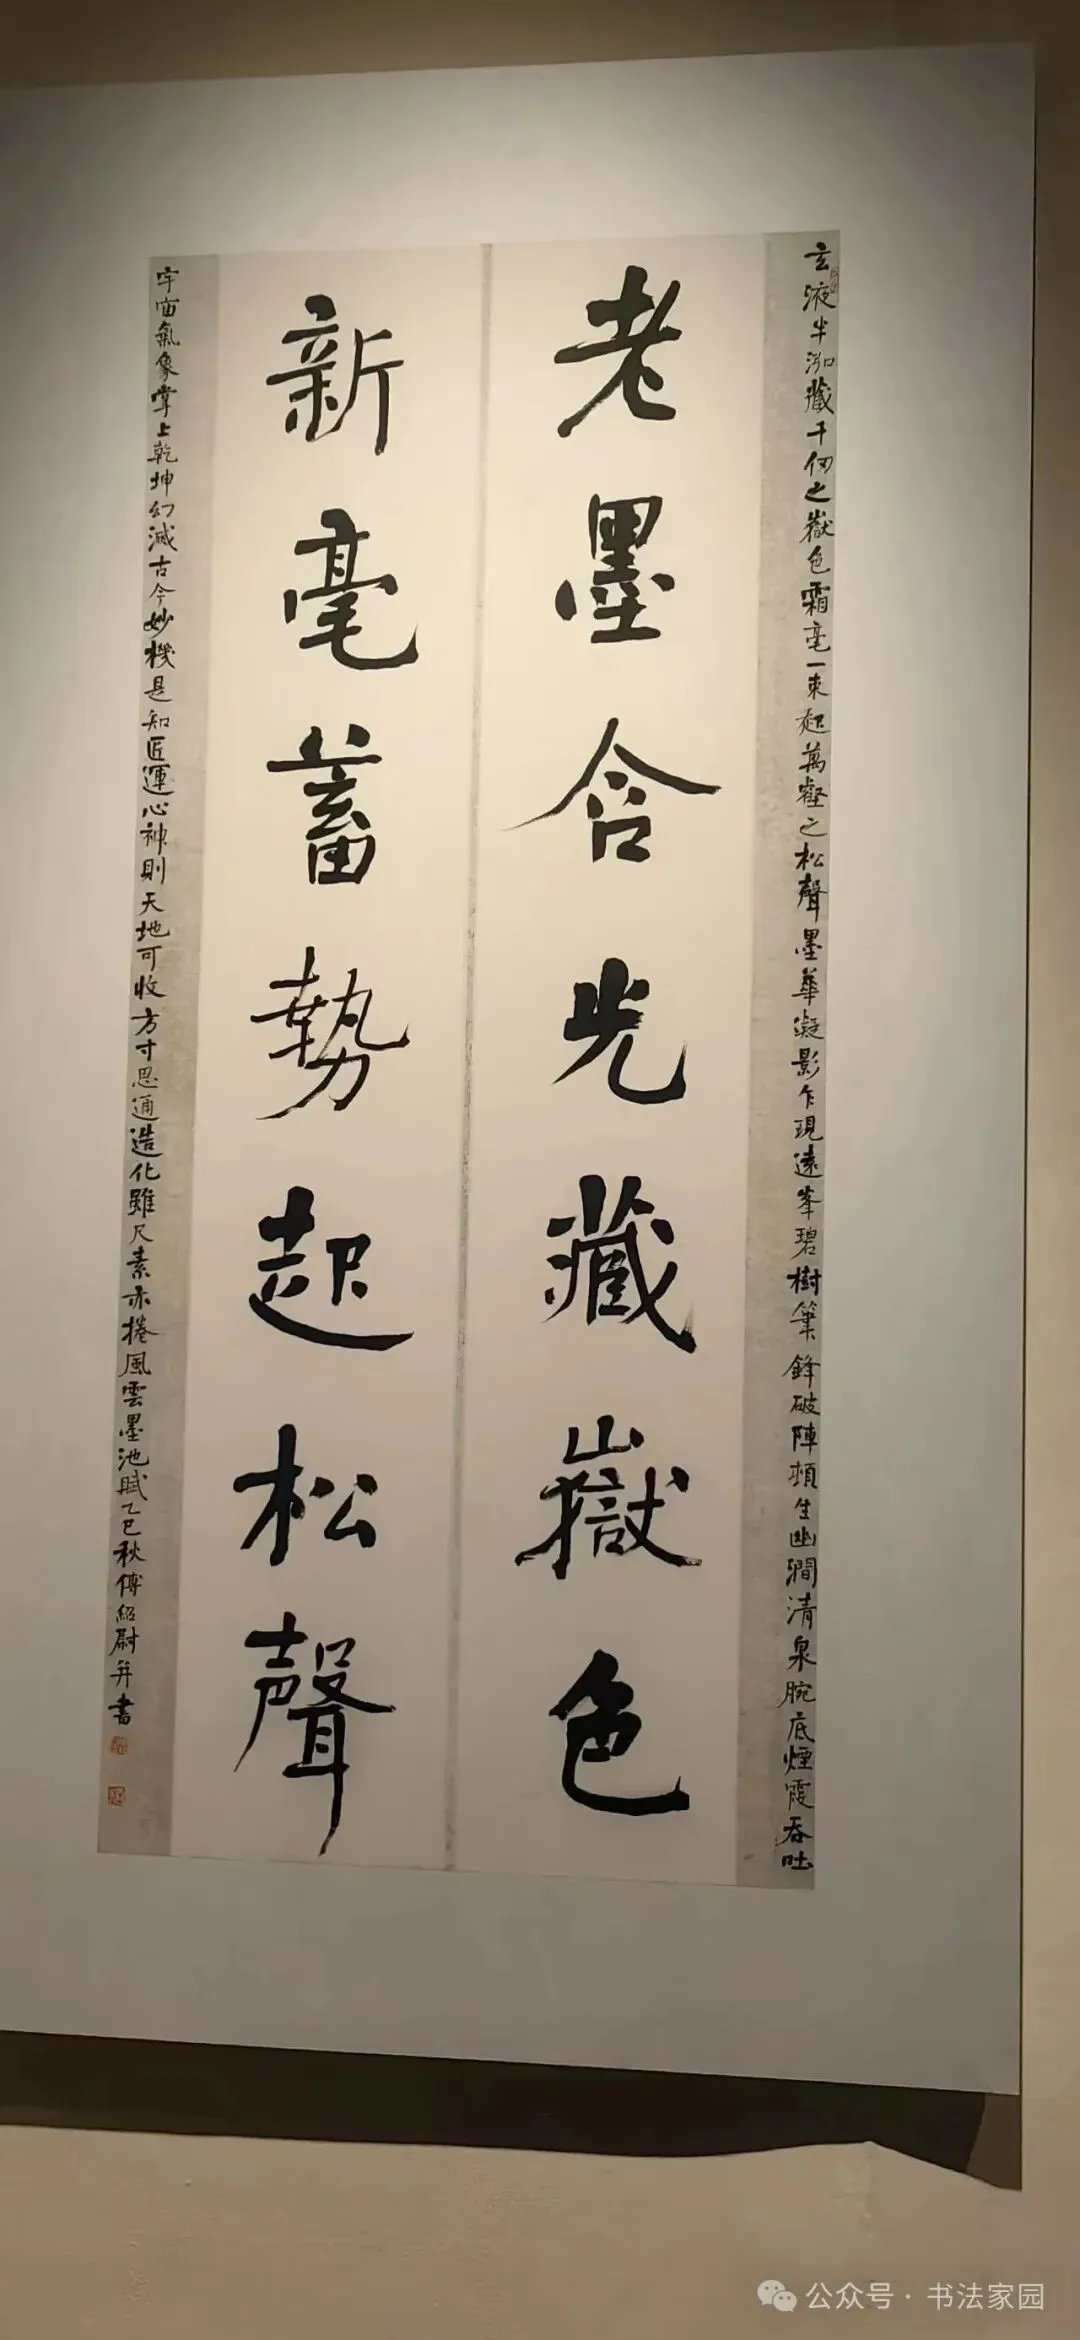 玄液半泓藏千仞之嶽色霜毫一束起萬壑之松聲墨華凝影乍現遠峯碧樹筆鋒破陣頓生幽澗清泉腕底煙霞吞吐
老墨含光藏嶽色
新毫蓄勢起松聲
宇宙氣象掌上乾坤幻滅古今妙機是知匠運心神則天地可收方寸思通造化雖尺素亦捲風雲墨池賦乙巳秋傅紹尉并書
公众号·书法家园